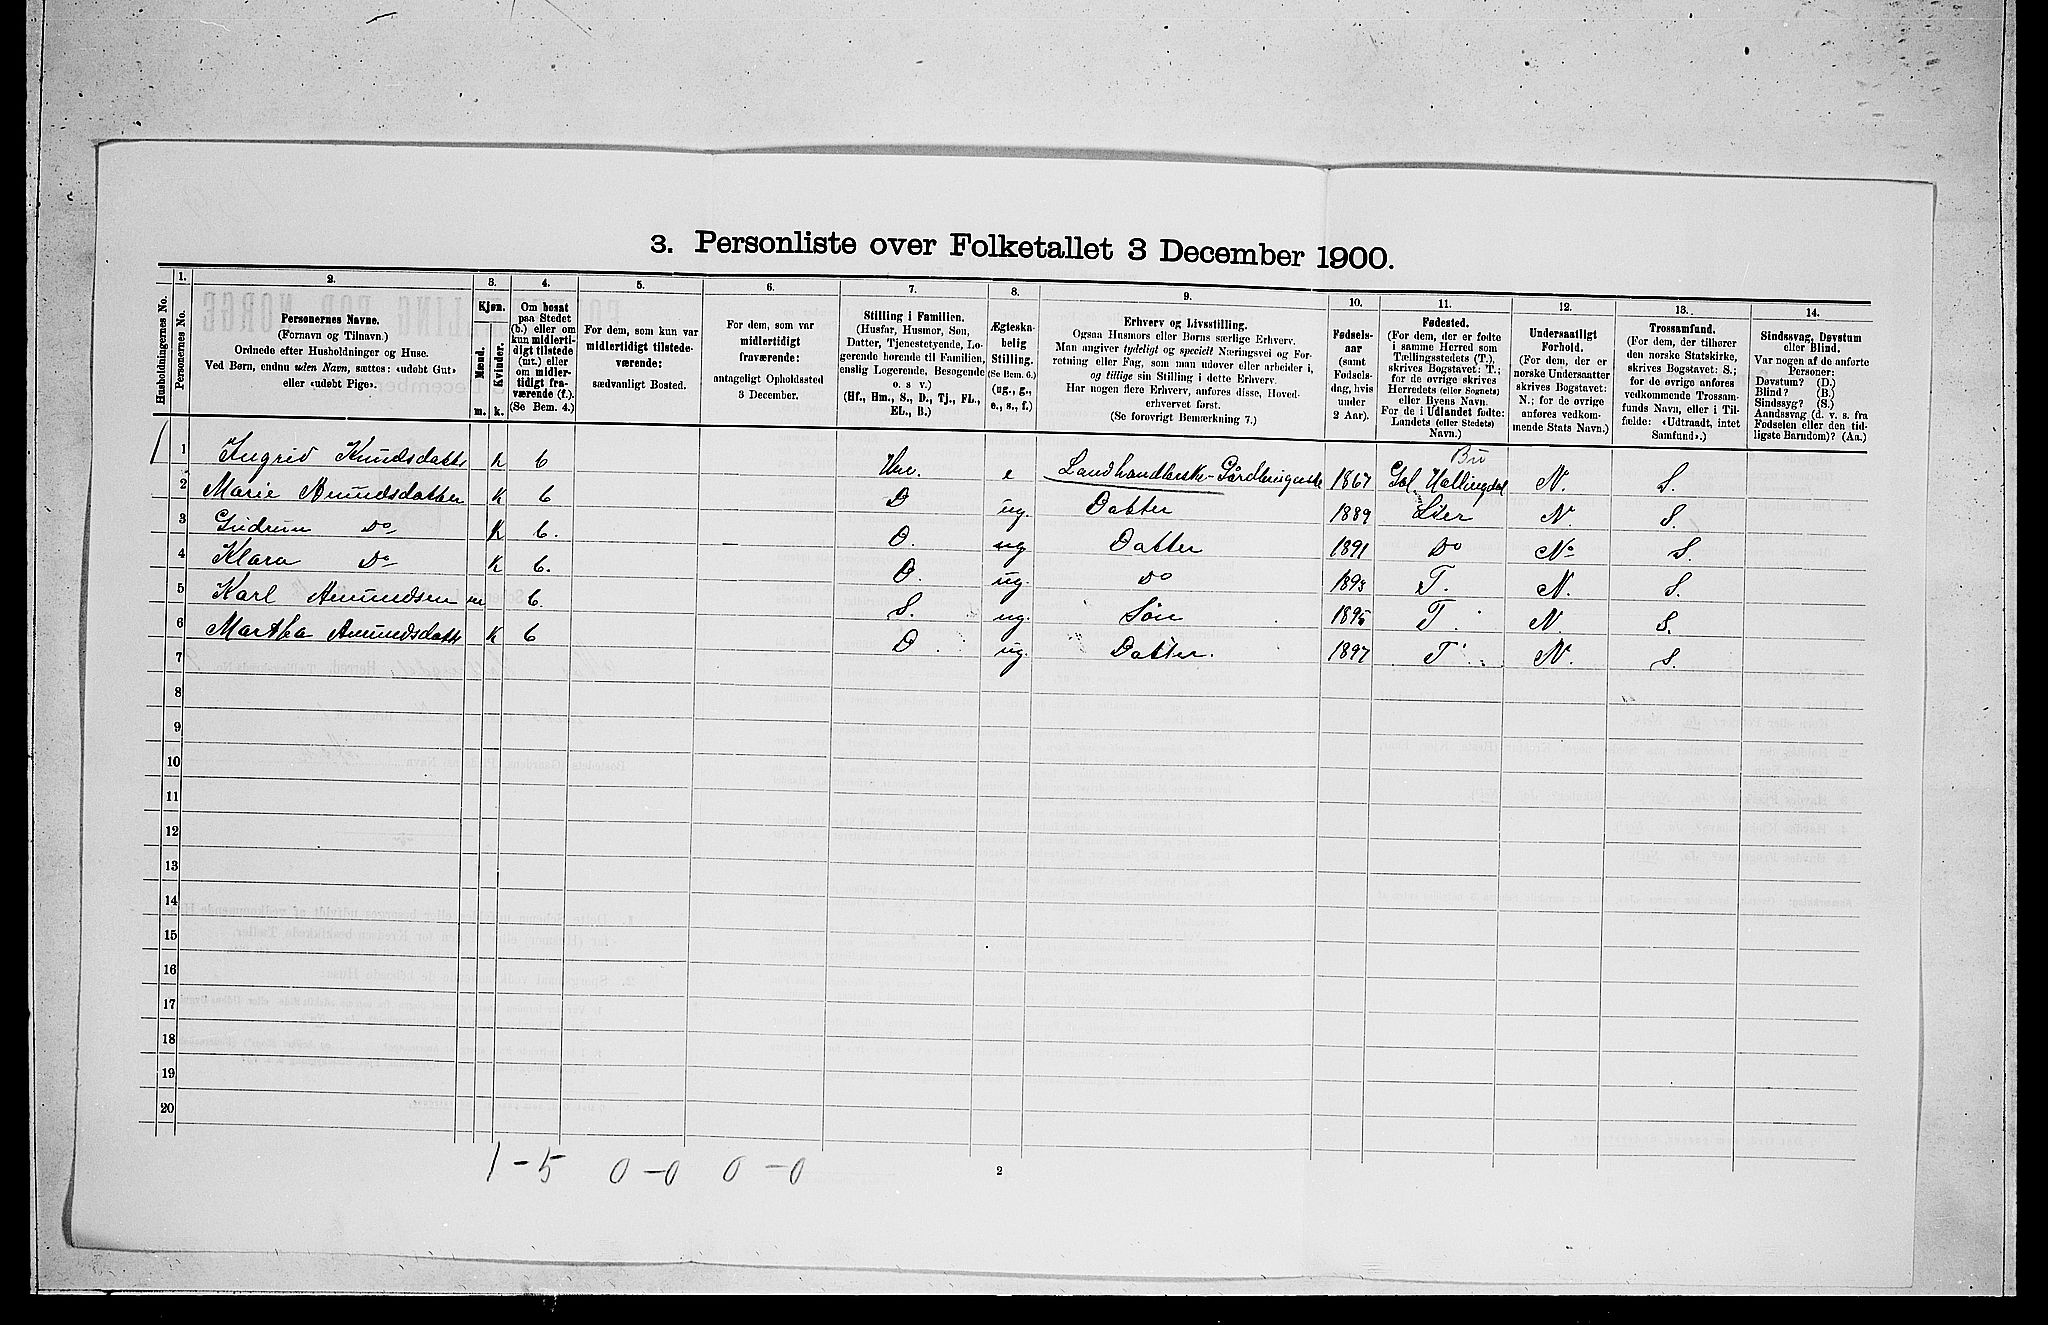 3. Personliste over Folketallet 3 December 1900.
Husholdningernes No.
1.
Personernes No.
2.
Personernes Navne.
(Fornavn og Tilnavn.)
Ordnede efter Husholdninger og Huse.
Ved Børn, endnu uden Navn, sættes: «udøbt Gut»
eller «udøbt Pige».
3.
Kjøn.
Mænd.
Kvinder.
m.
k.
4.
Om bosat
paa Stedet
(b.) eller om
kun midlerti-
digt tilstede
(mt.) eller
om midler-
tidigt fra-
værende (f.).
(Se Bem. 4.)
5.
For dem, som kun var
midlertidigt tilstede-
værende:
sædvanligt Bosted.
6.
For dem, som var
midlertidigt
fraværende:
antageligt Opholdssted
3 December.
7.
Stilling i Familien.
(Husfar, Husmor, Søn,
Datter, Tjenestetyende, Lo-
gerende hørende til Familien,
enslig Logerende, Besøgende
o. s v.)
(Hf., Hm., S., D., Tj., FL.,
EL., B.)
8.
Ægteska-
belig
Stilling.
(Se Bem. 6.)
(ug., g.,
e., s., f.)
9.
Erhverv og Livsstilling.
Ogsaa Husmors eller Børns særlige Erhverv.
Man angiver tydeligt og specielt Næringsvei og For-
retning eller Fag, som man udøver eller arbeider i,
og tillige sin Stilling i dette Erhverv.
Har nogen flere Erhverv, anføres disse, Hoved-
erhvervet først.
(Se forøvrigt Bemærkning 7.)
10.
Fødsels-
aar
(samt
Fødsels-
dag, hvis
under
2 Aar).
11.
Fødested.
(For dem, der er fødte
i samme Herred som
Tællingsstedets (T.),
skrives Bogstavet: T.;
for de øvrige skrives
Herredets (eller Sognets)
eller Byens Navn.
For de i Udlandet fødte:
Landets (eller Stedets)
Navn.)
12.
Undersaatligt
Forhold.
(For dem, der er
norske Undersaatter
skrives Bogstavet:
N.; for de øvrige
anføres vedkom-
mende Stats Navn.)
13.
Trossamfund.
(For dem, der tilhører
den norske Statskirke,
skrives Bogstavet: S.;
for de øvrige anføres
vedkommende Trossam-
funds Navn, eller i Til-
fælde: «Udtraadt, intet
Samfund».)
14.
Sindssvag, Døvstum
eller Blind.
Var nogen af de anførte
Personer:
Døvstum? (D.)
Blind? (B.)
Sindssyg? (S.)
Aandssvag (d. v. s. fra
Fødselen eller den tid-
ligste Barndom)? (Aa.)
1 1 Ingrid Knudsdatter k b e Landhandlerske - 1867 Bu Gol, Hallingdal N. S.
2 Marie Amundsdatter k b D ug. Datter 1889 Lier N. S.
3 Gudrun Do k b. D. ug Datter 1891 Do N. S.
4 Klara Do k b. D. ug. Do 1893 T. N. S.
5 Karl Amundsen m b. S. ug. Søn 1895 T. N. S.
6 Martha Amundsdatt k b D ug. Datter. 1897 T N. S.
7
8
9
10
11
12
13
14
15
16
17
18
19
20
1-5 0-0 0-0
2